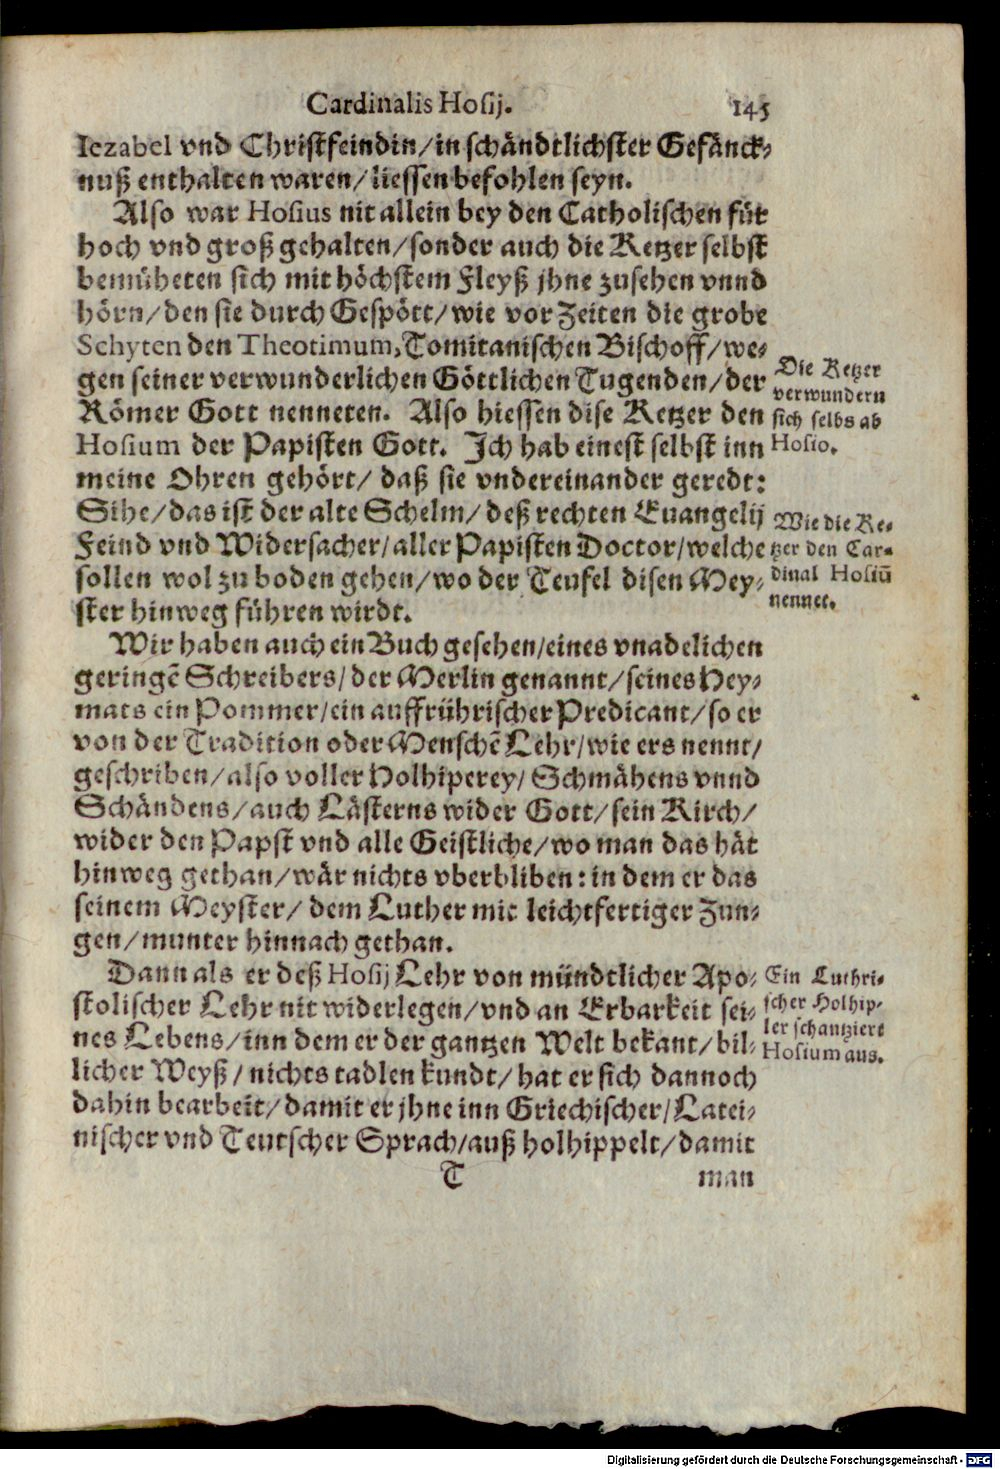 Cardinalis Hosij. 145
Iezabel vnd Christfeindin/in schändtlichster Gefänck-
nuß enthalten waren/liessen befohlen seyn.
Also war Hosius nit allein bey den Catholischen für
hoch vnd groß gehalten/sonder auch die Ketzer selbst
bemüheten sich mit höchstem Fleyß jhne zusehen vnnd
hörn/den sie durch Gespött/wie vor Zeiten die grobe
Schyten den Theotimum, Tomitanischen Bischoff/we-
gen seiner verwunderlichen Göttlichen Tugenden/der
Römer Gott nenneten. Also hiessen dise Ketzer den
Hosium der Papisten Gott. Ich hab einest selbst inn
meine Ohren gehört/ daß sie vndereinander geredt:
Sihe/das ist der alte Schelm/ deß rechten Euangelij
Feind vnd Widersacher/aller Papisten Doctor/welche
sollen wol zu boden gehen/wo der Teufel disen Mey-
ster hinweg führen wirdt.
Die Ketzer
verwundern
sich selbs ab
Hosio.
Wie die Ke-
tzer den Car-
dinal Hosiū
nennet.
Wir haben auch ein Buch gesehen/eines vnadelichen
geringē Schreibers/der Merlin genannt/seines Hey-
mats ein Pommer/ein auffrührischer Predicant/so er
von der Tradition oder Menschē Lehr/wie ers nennt/
geschriben/also voller Holhiperey/ Schmähens vnnd
Schändens/auch Lästerns wider Gott/sein Kirch/
wider den Papst vnd alle Geistliche/wo man das hät
hinweg gethan/wär nichts vberbliben: in dem er das
seinem Meyster/ dem Luther mit leichtfertiger Zun-
gen/munter hinnach gethan.
Dann als er deß Hosij Lehr von mündtlicher Apo-
stolischer Lehr nit widerlegen/vnd an Erbarkeit sei-
nes Lebens/inn dem er der gantzen Welt bekant/bil-
licher Weyß/nichts tadlen kundt/hat er sich dannoch
dahin bearbeit/damit er jhne inn Griechischer/Latei-
nischer vnd Teutscher Sprach/auß holhippelt/damit
Ein Luthri-
scher Holhip-
ler schantziert
Hosium aus.
T man
Digitalisierung gefördert durch die Deutsche Forschungsgemeinschaft - DFG